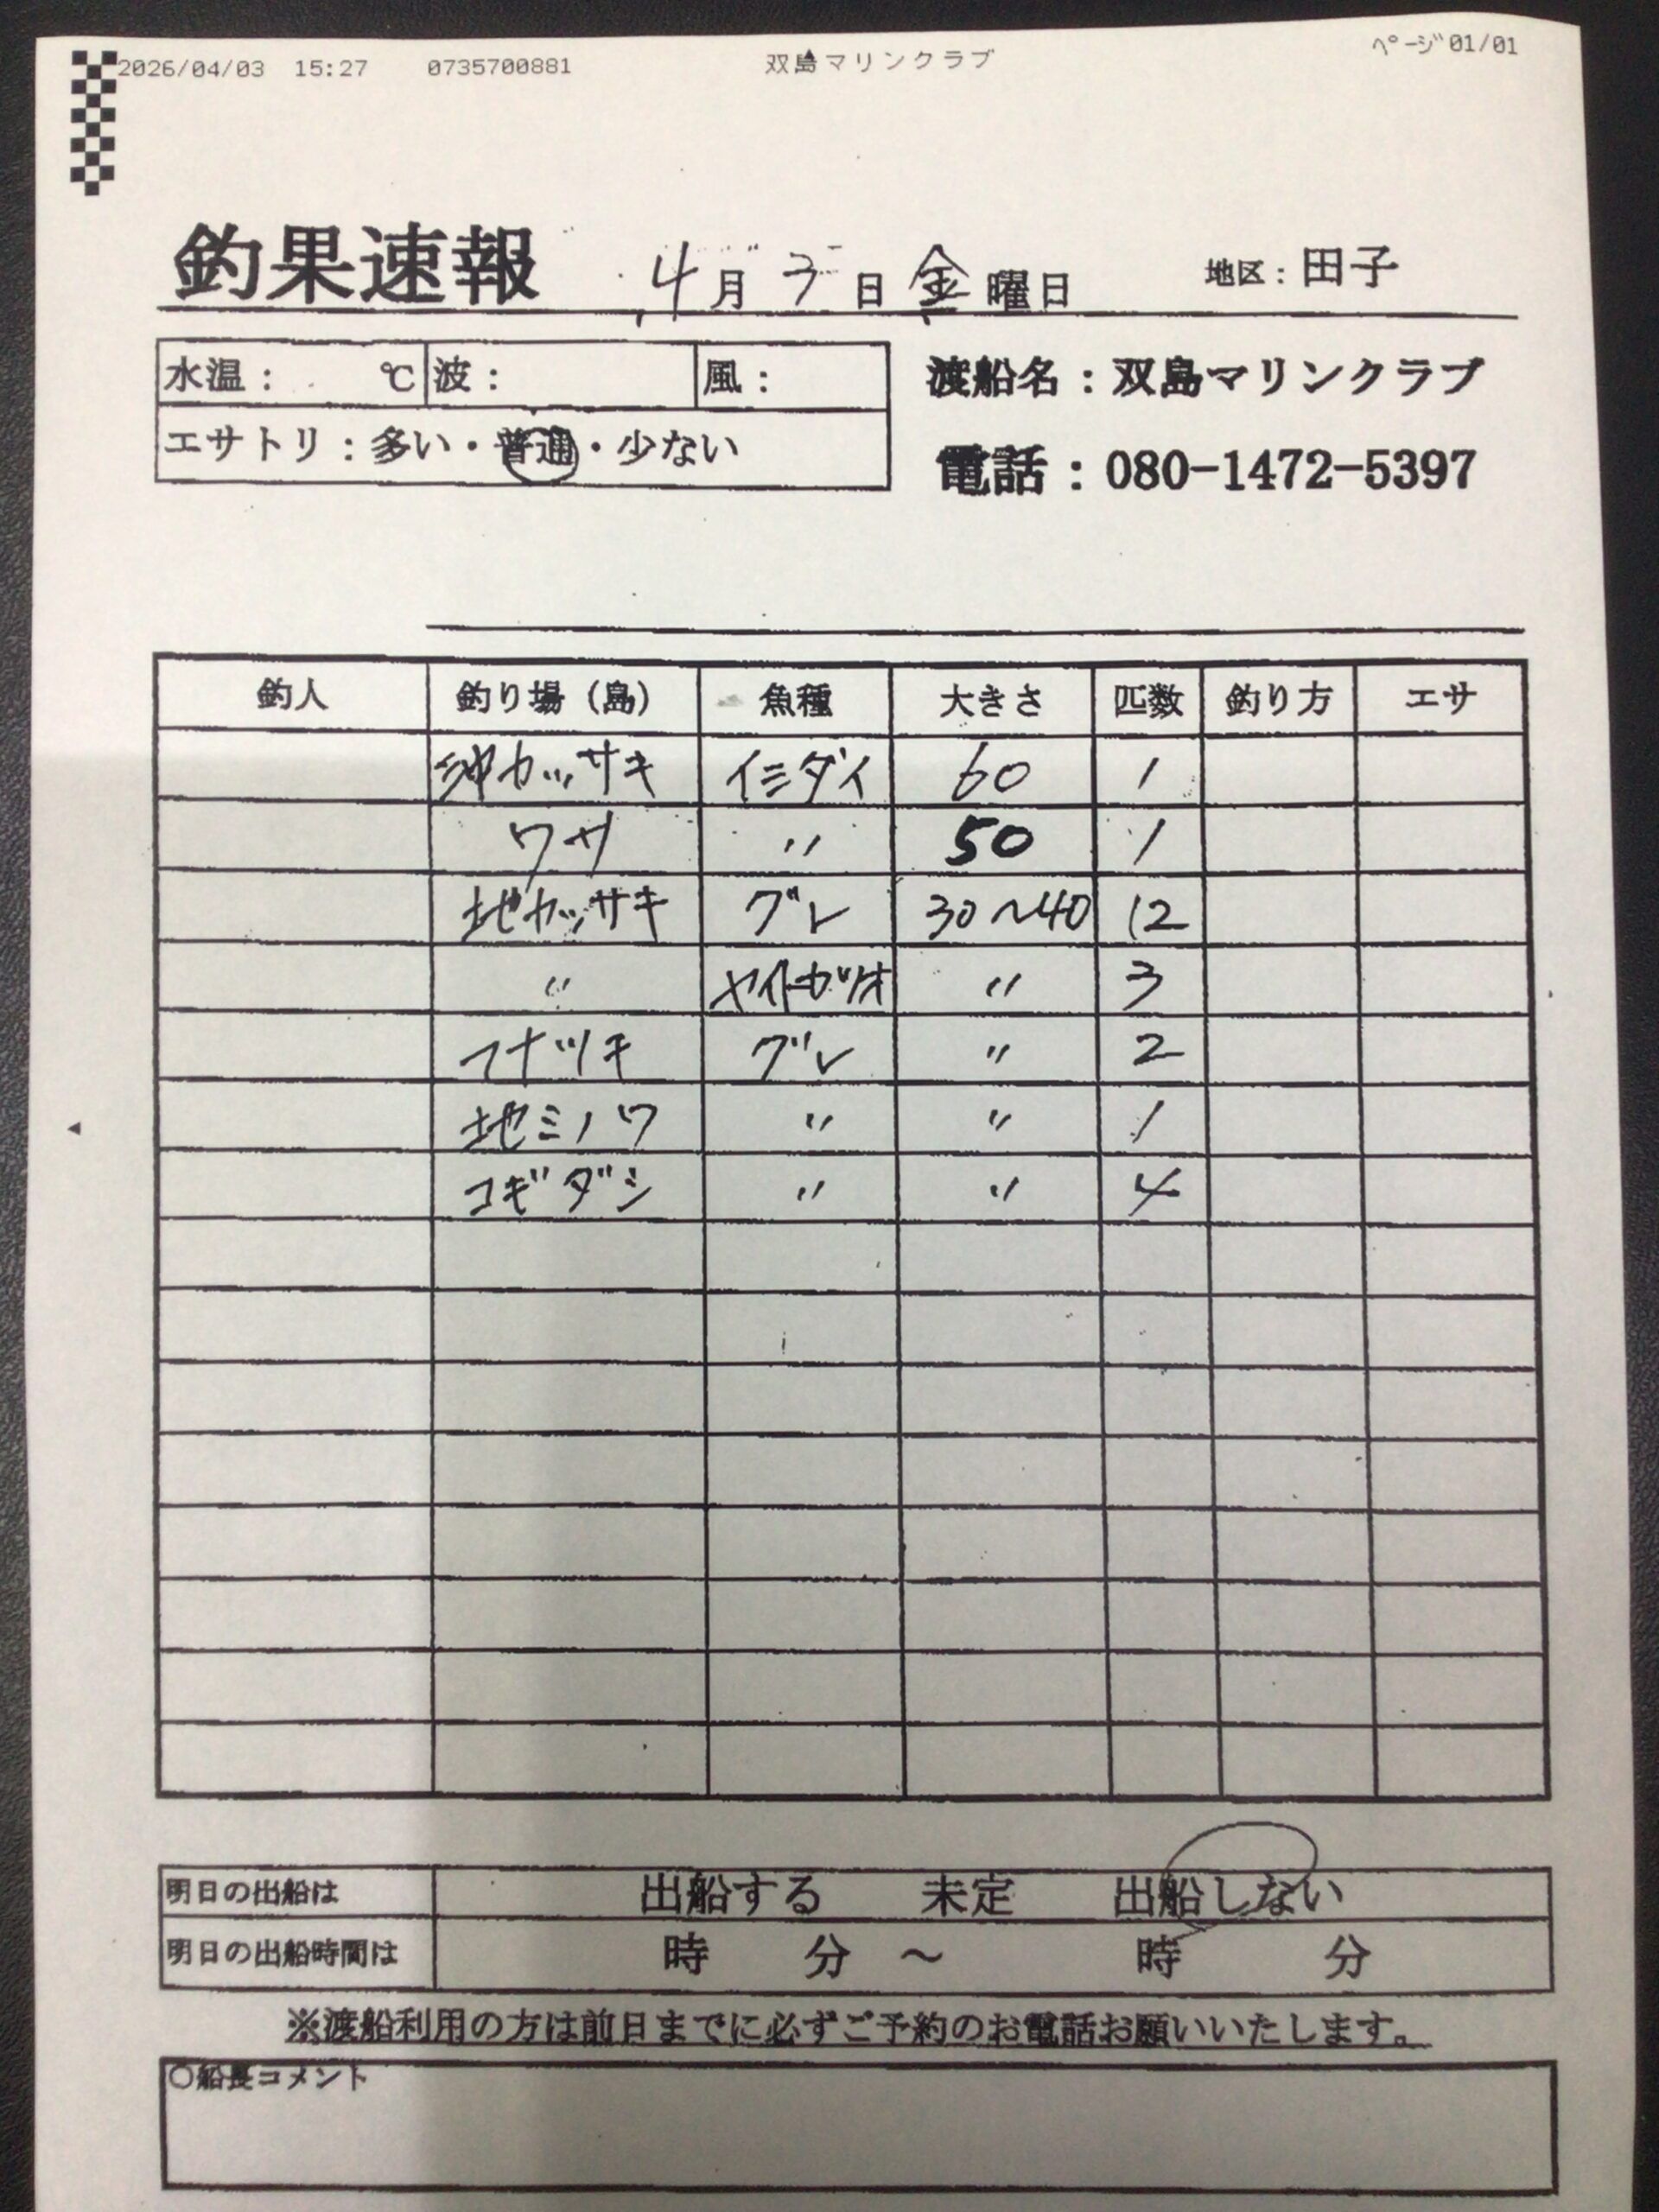 2026/04/03 15:27 0735700881 双島マリンクラブ ページ01/01
釣果速報 4月3日金曜日 地区：田子
水温： ℃ 波： 風：
渡船名：双島マリンクラブ
エサトリ：多い・普通・少ない
電話：080-1472-5397
釣人 釣り場（島） 魚種 大きさ 匹数 釣り方 エサ
沖カッサキ イシダイ 60 1
ワサ 〃 50 1
地カッサキ グレ 30〜40 12
〃 ヤイトガツオ 〃 3
フナツキ グレ 〃 2
地ミノワ 〃 〃 1
コギダシ 〃 〃 4
明日の出船は 出船する 未定 出船しない
明日の出船時間は 時 分 〜 時 分
※渡船利用の方は前日までに必ずご予約のお電話お願いいたします。
○船長コメント